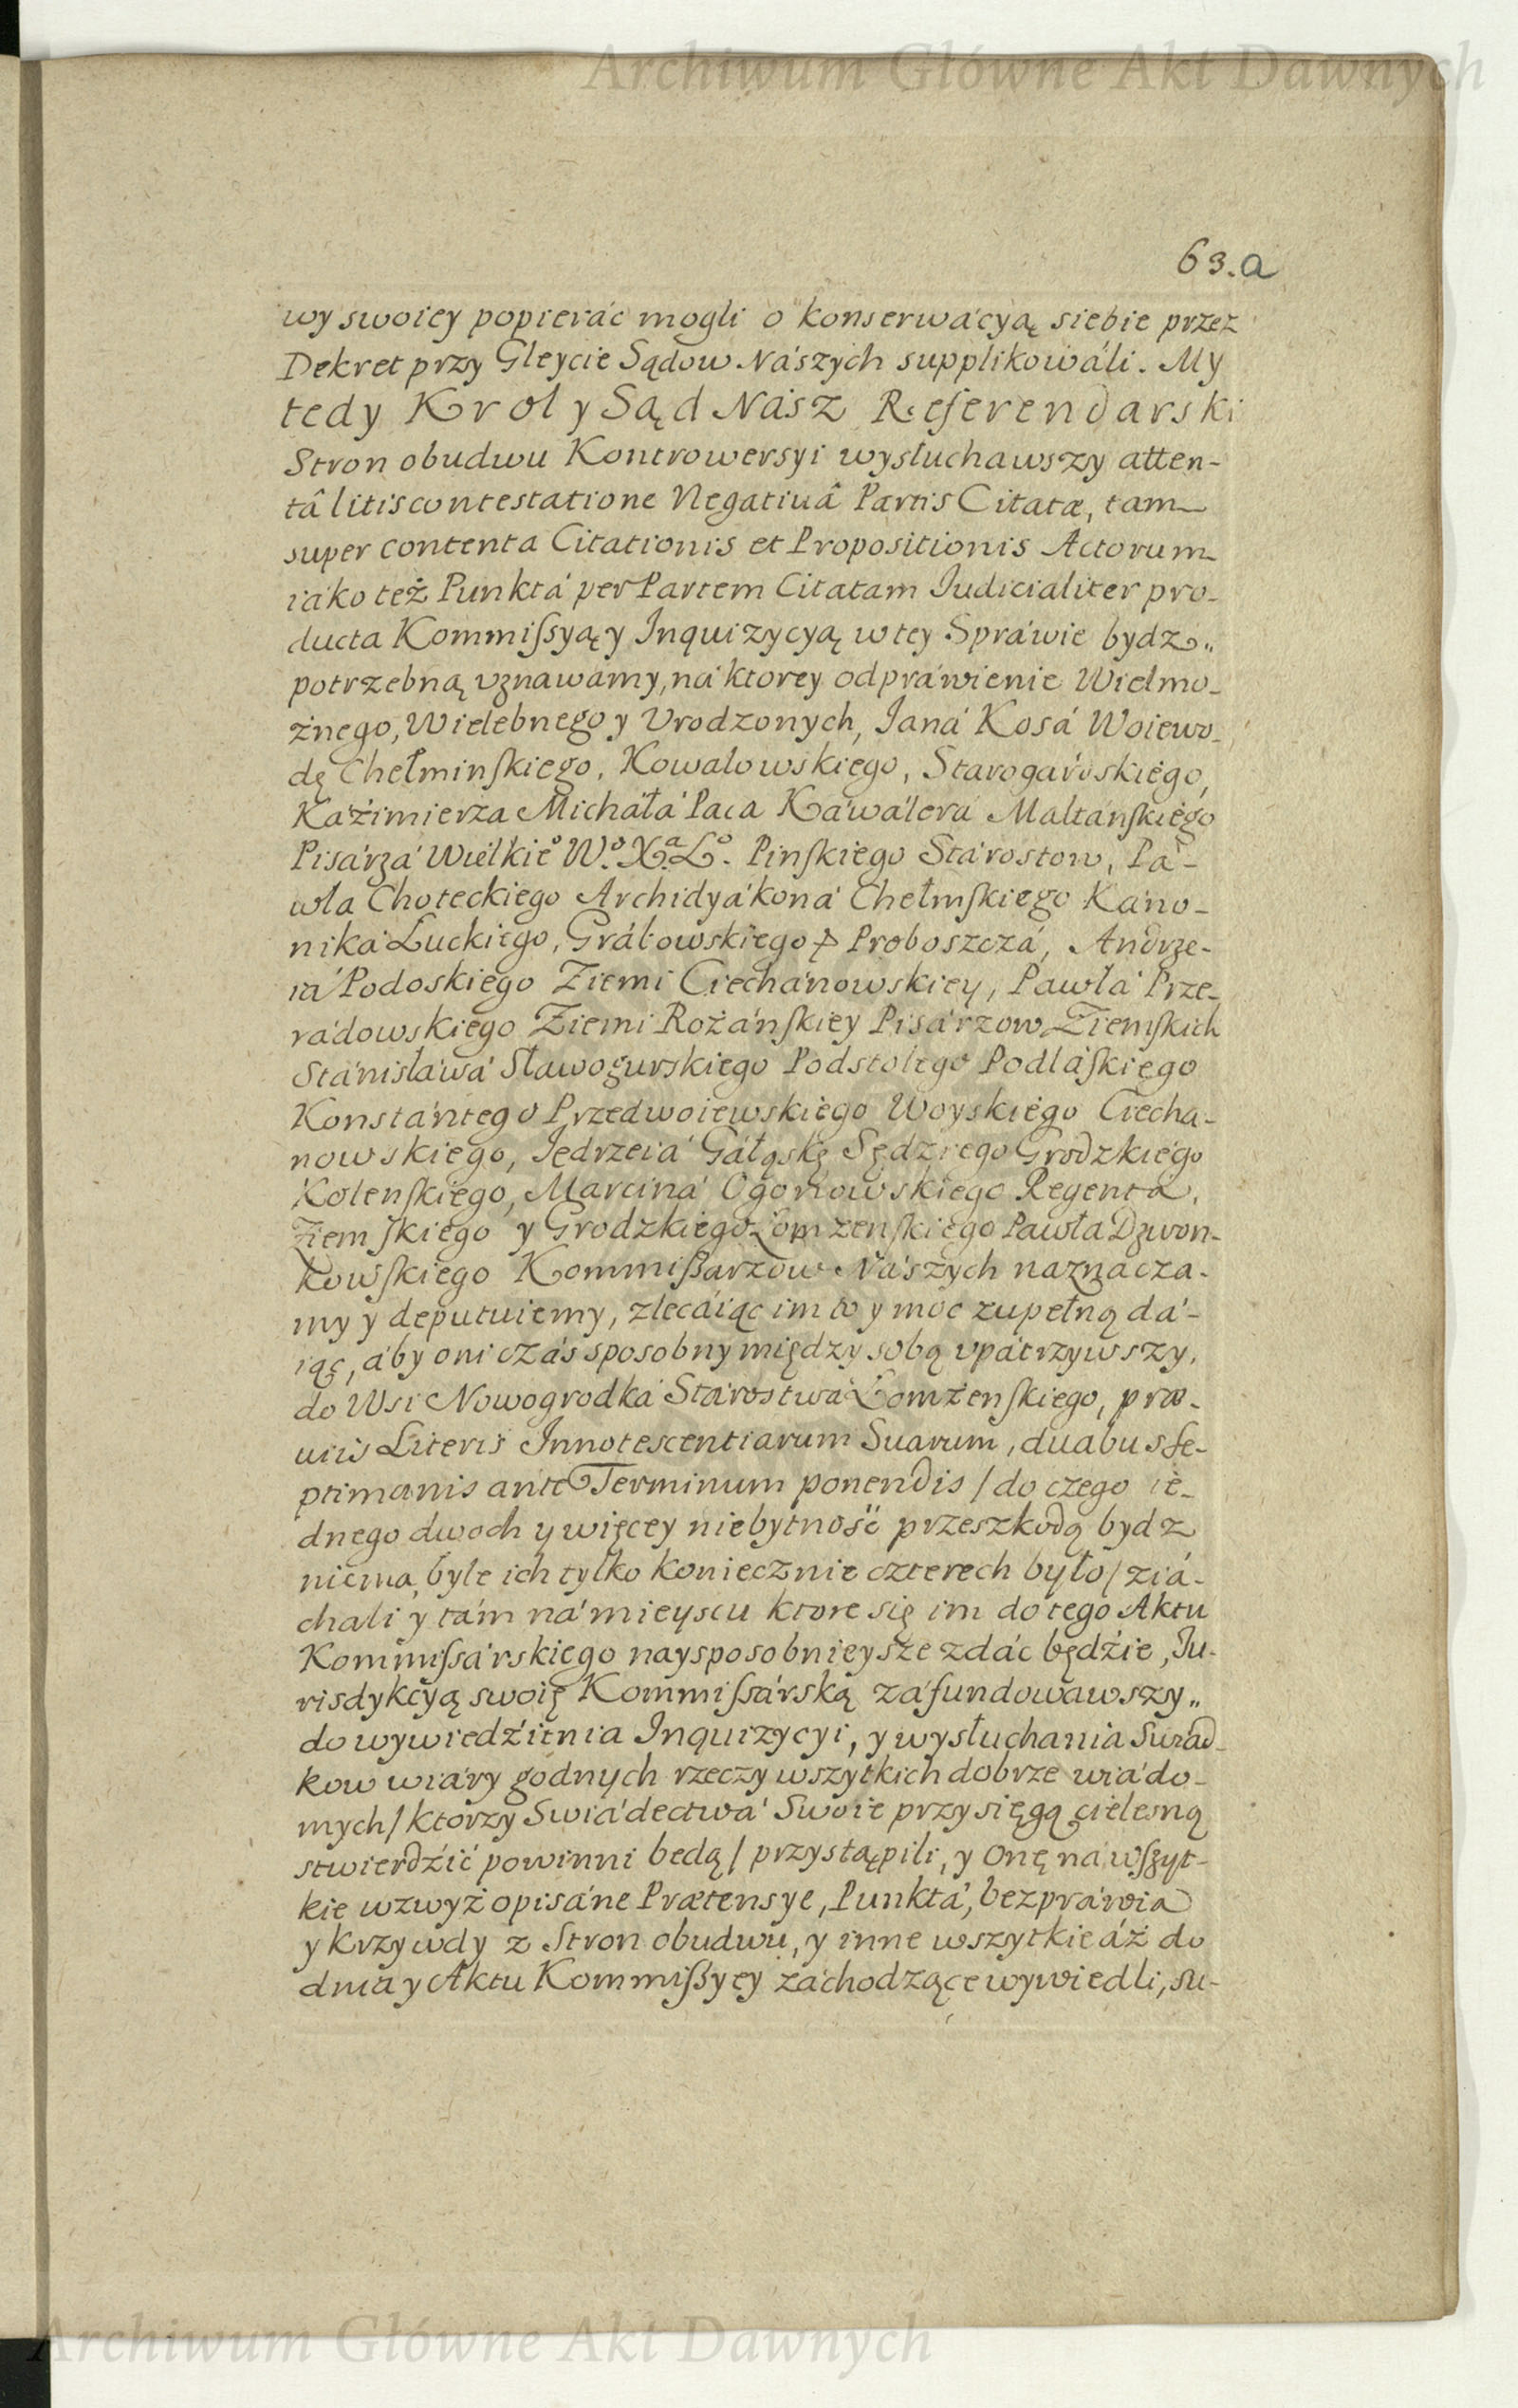 Archiwum Główne Akt Dawnych
63.a
wy swoiey popieráć mogli o konserwácyą siebie przez
Dekret przy Gleycie Sądow Nászych supplikowáli. My
tedy Krol y Sąd Nász Referendarski
Stron obudwu Kontrowersyi wysłuchawszy atten-
tâ litis contestatione Negatiuâ Partis Citatæ, tam
super contenta Citationis et Propositionis Actorum
iáko też Punktá per Partem Citatam Iudicialiter pro-
ducta Kommiſsyą y Inquizycyą w tey Spráwie bydz„
potrzebną vznawamy, ná ktorey odpráwienie Wielmo-
żnego, Wielebnego y Vrodzonych, Janá Kosá Woiewo-
dę Chełminſkiego, Kowalowskiego, Starogárdskiego,
Kaźimierza Michałá Paca Káwálerá Maltánſkiego
Pisárzá Wielkie° W.° X.ª L°. Pinſkiego Stárostow, Pá-
wła Choteckiego Archidyákoná Chełmſkiego Káno-
niká Łuckiego, Grábowskiego Proboszczá, Andrze-
iá Podoskiego Ziemi Ciechánowskiey, Pawłá Prze-
rádowskiego Ziemi Rożánſkiey Pisárzow Ziemſkich
Stánisłáwá Sławogurskiego Podstolego Podláſkiego
Konstántego Przedwoiewskiego Woyskiego Ciecha-
nowskiego, Jędrzeiá Gáłąskę Sędziego Grodzkiego
Kolenſkiego, Marciná Ogonowskiego Regentá,
Ziemſkiego y Grodzkiego Łomzenſkiego Pawłá Dzwon-
kowſkiego Kommiſsarzow Nászych náznácza-
my y deputuiemy, zlecáiąc im to y moc zupełną dá-
iąc, áby oni czás sposobny między sobą vpátrzywszy,
do Wsi Nowogrodká Stárostwá Łomżenſkiego, præ-
uiis Literis Innotescentiarum Suarum, duabus Se-
ptimanis ante Terminum ponendis / do czego ie-
dnego dwoch y więcey niebytność przeszkodą bydz
niema, byle ich tylko koniecznie czterech było / ziá-
chali y tám ná mieyscu ktore się im do tego Aktu
Kommiſsárskiego naysposobnieysze zdáć będźie, Ju-
risdykcyą swoię Kommiſsárską záfundowawszy„
do wywiedźienia Inquizycyi, y wysłuchania Swiad-
kow wiáry godnych rzeczy wszytkich dobrze wiádo-
mych / ktorzy Swiádectwá Swoie przysięgą cielesną
stwierdźić powinni będą / przystąpili, y onę ná wſzyt-
kie wzwyż opisáne Prætensye, Punktá, bezpráwia
y Krzywdy z Stron obudwu, y inne wszytkie áż do
dnia y Aktu Kommiſsyey záchodzące wywiedli, su-
Archiwum Główne Akt Dawnych